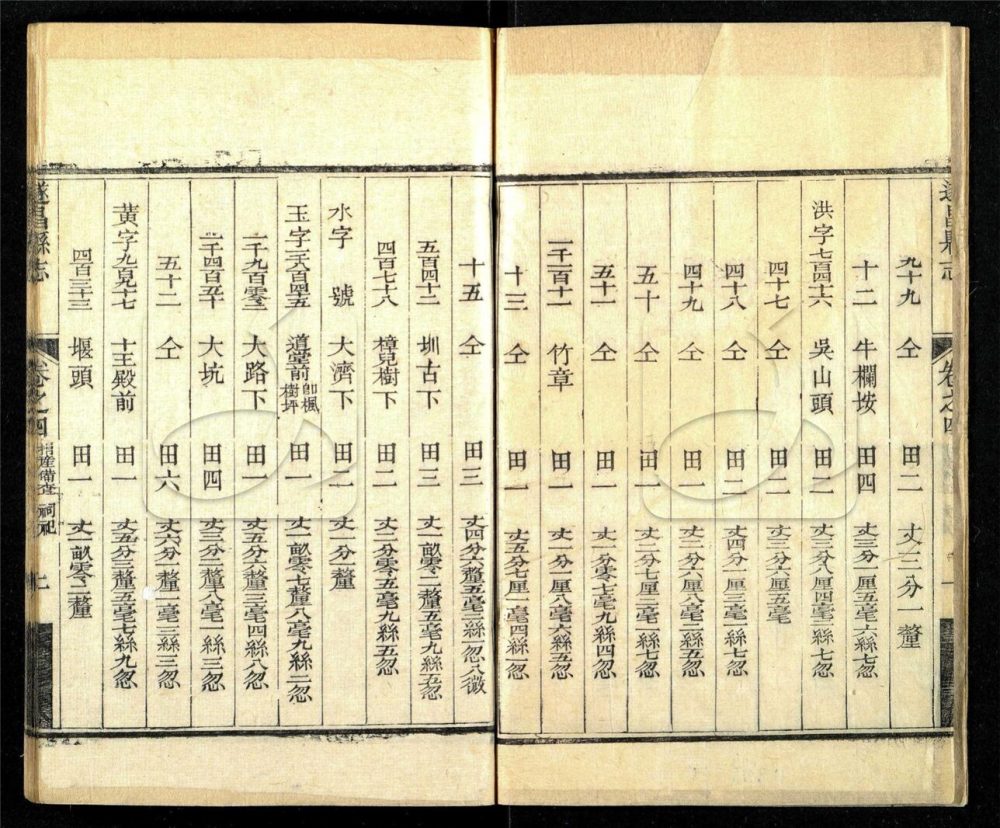 遂昌縣志
卷之四
九十九 仝 田二 丈二分一釐
十二 牛欄垵 田四 丈三分一厘五毫六絲七忽
洪字七百四十六 吳山頭 田二 丈三分八厘四毫三絲七忽
四十七 仝 田二 丈二分六厘五毫
四十八 仝 田二 丈四分
四十九 仝 田一 丈二分六厘八毫二絲五忽
五十 仝 田一 丈二分七厘二毫一絲七忽
五十一 仝 田一 丈一分零七毫九絲四忽
一千二百十一 竹章 田一 丈一分一厘八毫六絲五忽
十三 仝 田一 丈五分七厘一毫四絲一忽
十五 仝 田三 丈四分六釐五毫三絲一忽八微
五百四十二 圳古下 田三 丈一畝零二釐五毫九絲五忽
四百七十八 樟兒樹下 田二 丈二分零五毫九絲五忽
水字 號 大濟下 田二 丈一分一釐
玉字 道堂前 卽楓樹坪 田一 丈一畝零七釐八毫九絲二忽
一千九百零 大路下 田一 丈五分六釐三毫四絲八忽
一千四百五十 大坑 田四 丈三分二釐八毫一絲三忽
五十二 仝 田六 丈六分一釐一毫三絲三忽
黃字九百九十七 十王殿前 田一 丈五分三釐五毫七絲九忽
四百三十三 堰頭 田一 丈一畝零二釐
遂昌縣志
卷之四
租產備查 祠祀